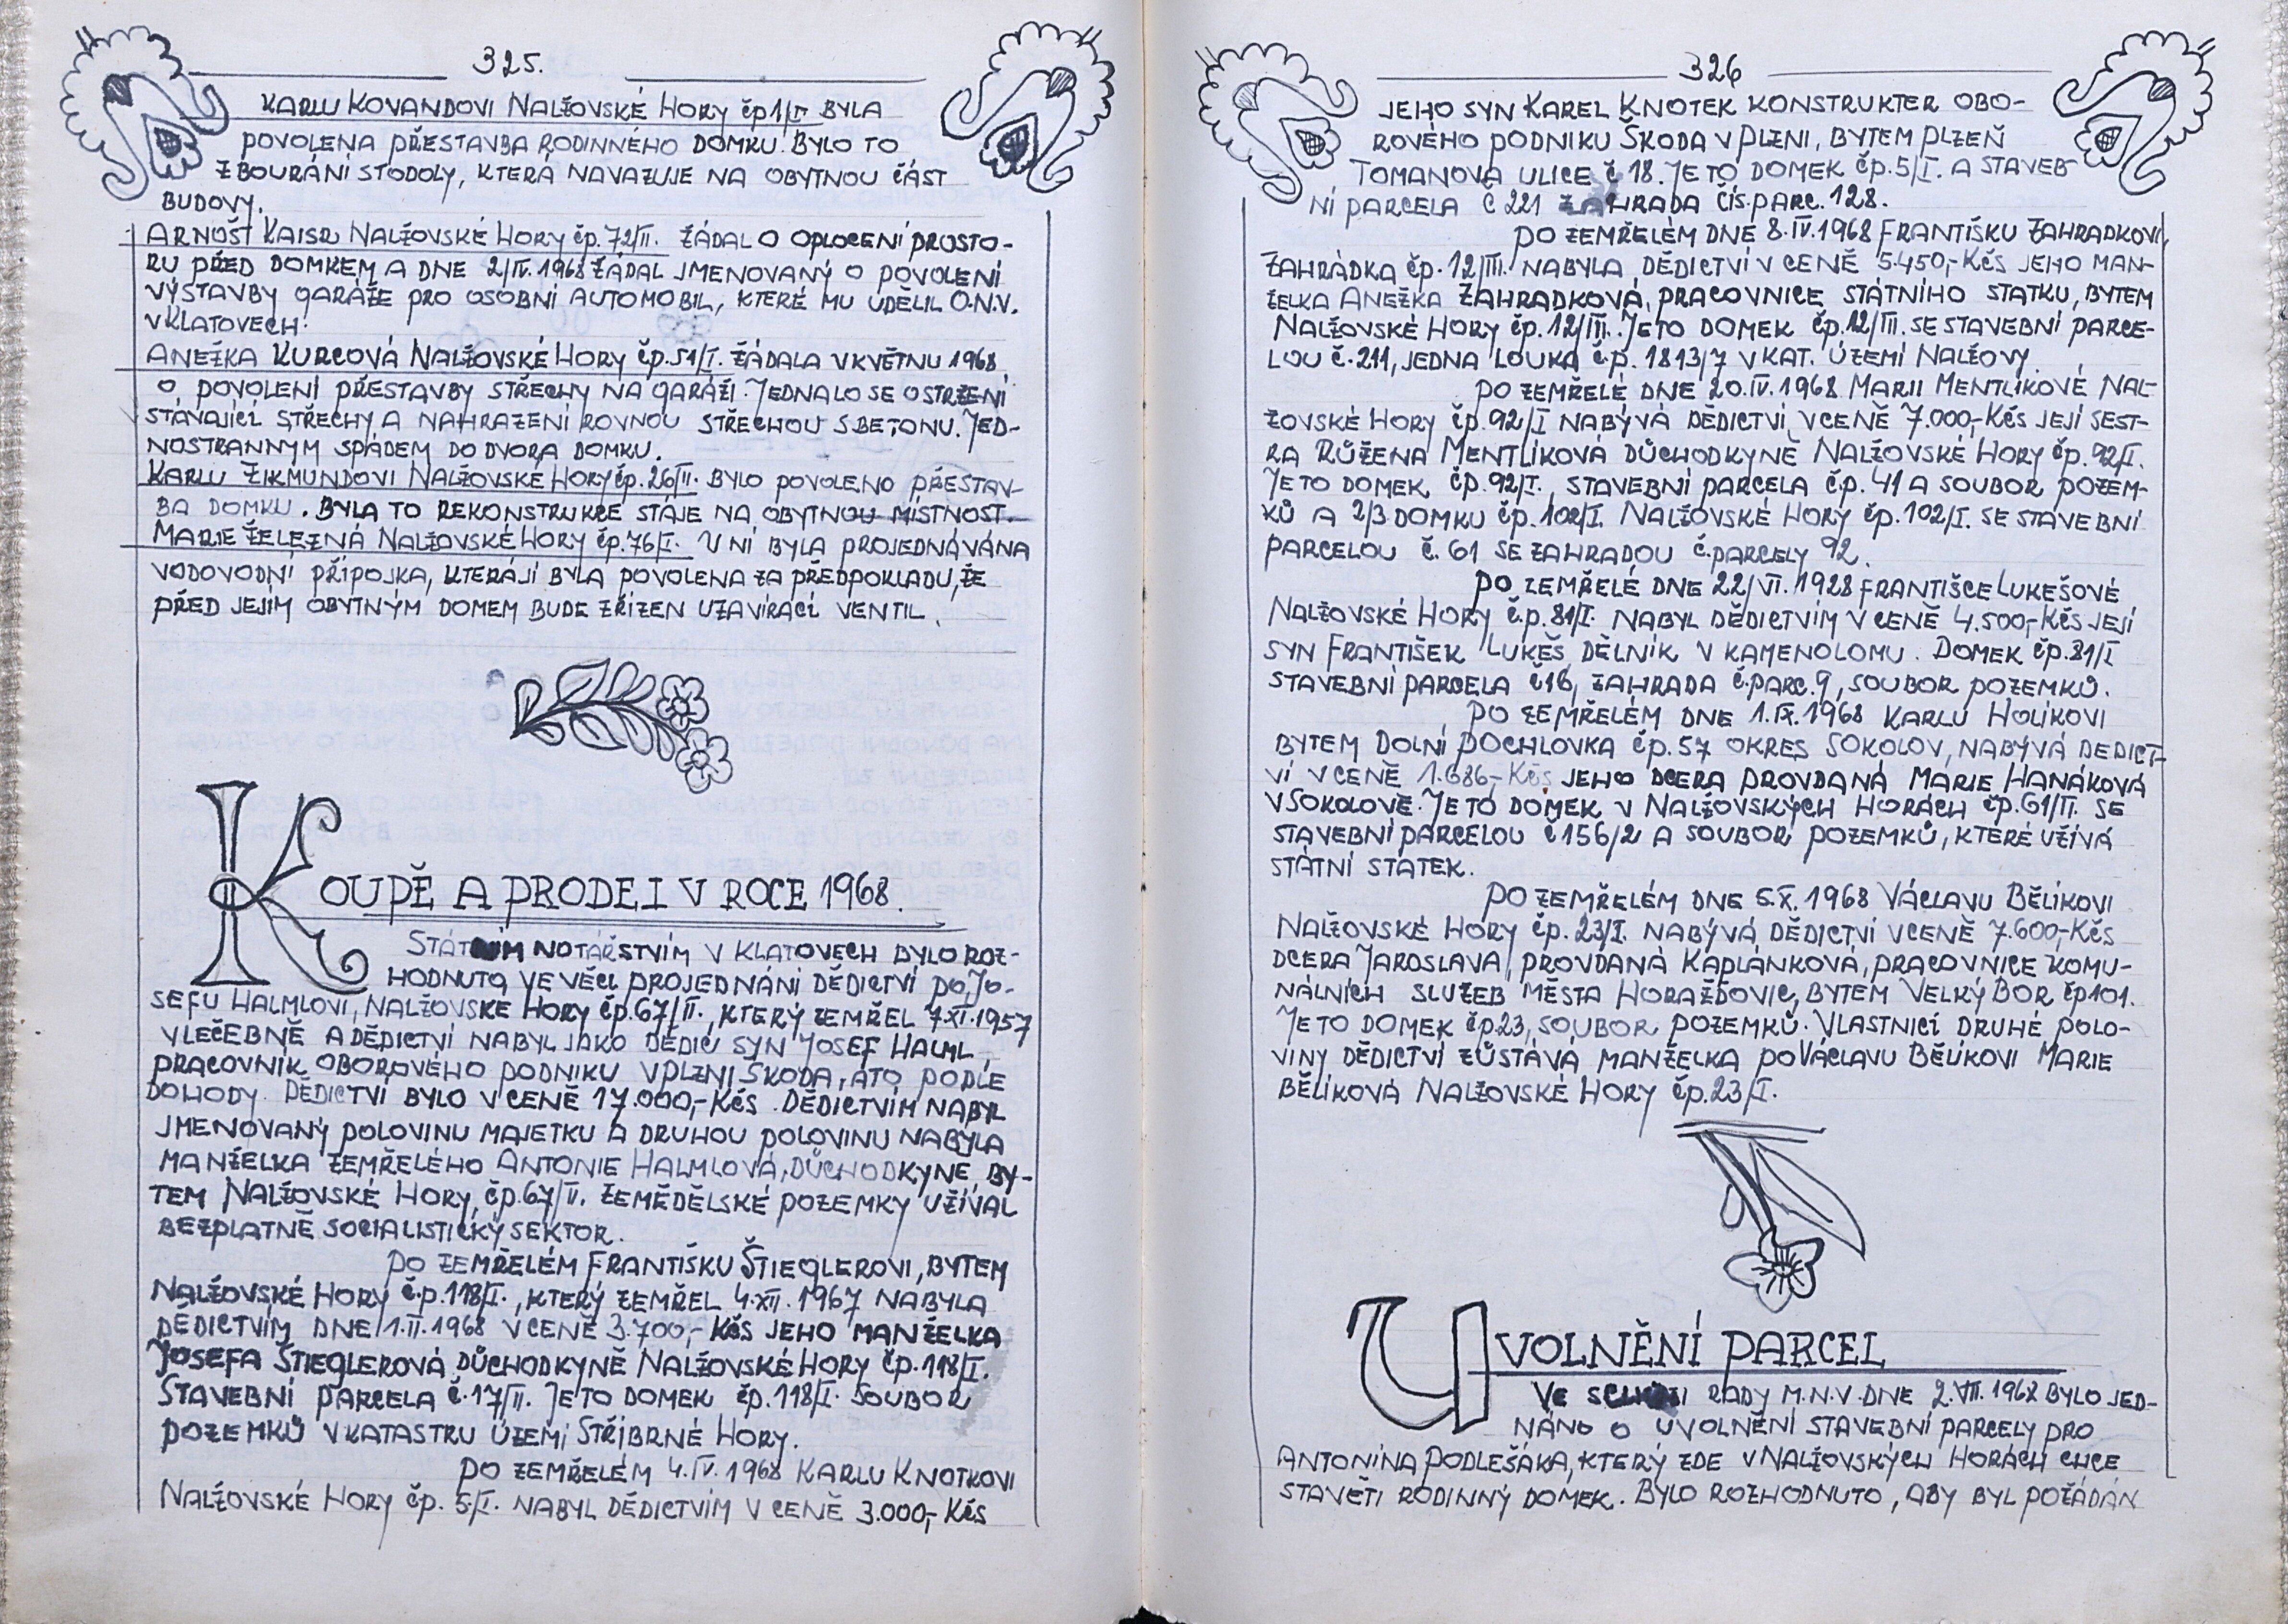 325.
KARLU KOVANDOVI NALŽOVSKÉ HORY čp 1/II BYLA
POVOLENA PŘESTAVBA RODINNÉHO DOMKU. BYLO TO
ZBOURÁNÍ STODOLY, KTERÁ NAVAZUJE NA OBYTNOU ČÁST
BUDOVY.
ARNOŠT KAISR NALŽOVSKÉ HORY čp. 72/II. ŽÁDAL O OPLOCENÍ PROSTO-
RU PŘED DOMKEM A DNE 2/IV. 1968 ŽÁDAL JMENOVANÝ O POVOLENÍ
VÝSTAVBY GARÁŽE PRO OSOBNÍ AUTOMOBIL, KTERÉ MU UDĚLIL O.N.V.
V KLATOVECH.
ANEŽKA KURCOVÁ NALŽOVSKÉ HORY čp. 51/I. ŽÁDALA V KVĚTNU 1968
O POVOLENÍ PŘESTAVBY STŘECHY NA GARÁŽI. JEDNALO SE O STRŽENÍ
STÁVAJÍCÍ STŘECHY A NAHRAZENÍ ROVNOU STŘECHOU S BETONU. JED-
NOSTRANNYM SPÁDEM DO DVORA DOMKU.
KARLU ZIKMUNDOVI NALŽOVSKÉ HORY čp. 26/II. BYLO POVOLENO PŘESTAV-
BA DOMKU. BYLA TO REKONSTRUKCE STÁJE NA OBYTNOU MÍSTNOST.
MARIE ŽELEZNÁ NALŽOVSKÉ HORY čp. 76/I. U NÍ BYLA PROJEDNÁVÁNA
VODOVODNÍ PŘÍPOJKA, KTERÁ JÍ BYLA POVOLENA ZA PŘEDPOKLADU, ŽE
PŘED JEJÍM OBYTNÝM DOMEM BUDE ZŘÍZEN UZAVÍRACÍ VENTIL.
KOUPĚ A PRODEJ V ROCE 1968.
STÁTNÍM NOTAŘSTVÍM V KLATOVECH BYLO ROZ-
HODNUTO VE VĚCI PROJEDNÁNÍ DĚDICTVÍ PO JO-
SEFU HALMLOVI, NALŽOVSKÉ HORY čp. 67/II., KTERÝ ZEMŘEL 7.XI.1957
V LÉČEBNĚ A DĚDICTVÍ NABYL JAKO DĚDIC SYN JOSEF HALML
PRACOVNÍK OBOROVÉHO PODNIKU V PLZNI ŠKODA, A TO PODLE
DOHODY. DĚDICTVÍ BYLO V CENĚ 17.000,- Kčs. DĚDICTVÍM NABYL
JMENOVANÝ POLOVINU MAJETKU A DRUHOU POLOVINU NABYLA
MANŽELKA ZEMŘELÉHO ANTONIE HALMLOVÁ, DŮCHODKYNĚ, BY-
TEM NALŽOVSKÉ HORY, čp. 67/II. ZEMĚDĚLSKÉ POZEMKY UŽÍVAL
BEZPLATNĚ SOCIALISTICKÝ SEKTOR.
PO ZEMŘELÉM FRANTIŠKU ŠTIEGLEROVI, BYTEM
NALŽOVSKÉ HORY č.p. 118/I., KTERÝ ZEMŘEL 4.XII. 1967 NABYLA
DĚDICTVÍM DNE 1.II. 1968 V CENĚ 3.700,- Kčs JEHO MANŽELKA
JOSEFA ŠTIEGLEROVÁ, DŮCHODKYNĚ NALŽOVSKÉ HORY čp. 118/I.
STAVEBNÍ PARCELA č. 17/II. JE TO DOMEK čp. 118/I. SOUBOR
POZEMKŮ V KATASTRU ÚZEMÍ STŘÍBRNÉ HORY.
PO ZEMŘELÉM 4.IV. 1968 KARLU KNOTKOVI
NALŽOVSKÉ HORY čp. 5/I. NABYL DĚDICTVÍM V CENĚ 3.000,- Kčs
326
JEHO SYN KAREL KNOTEK KONSTRUKTER OBO-
ROVÉHO PODNIKU ŠKODA V PLZNI, BYTEM PLZEŇ
TOMANOVA ULICE č 18. JE TO DOMEK čp. 5/I. A STAVEB
NÍ PARCELA č 221 ZAHRADA ČÍS. PARC. 128.
PO ZEMŘELÉM DNE 8.IV. 1968 FRANTIŠKU ZAHRADKOVI,
ZAHRÁDKA čp. 12/III. NABYLA DĚDICTVÍ V CENĚ 5.450,- Kčs JEHO MAN-
ŽELKA ANEŽKA ZAHRADKOVÁ, PRACOVNICE STÁTNÍHO STATKU, BYTEM
NALŽOVSKÉ HORY čp. 12/III. JE TO DOMEK čp. 12/III. SE STAVEBNÍ PARCE-
LOU č. 211, JEDNA LOUKA č.p. 1813/7 V KAT. ÚZEMÍ NALŽOVY.
PO ZEMŘELÉ DNE 20.IV. 1968 MARII MENTLÍKOVÉ NAL-
ŽOVSKÉ HORY čp. 92/I NABÝVÁ DĚDICTVÍ V CENĚ 7.000,- Kčs JEJÍ SEST-
RA RŮŽENA MENTLÍKOVÁ DŮCHODKYNĚ NALŽOVSKÉ HORY čp. 92/I.
JE TO DOMEK čp. 92/I., STAVEBNÍ PARCELA čp. 41 A SOUBOR POZEM-
KŮ A 2/3 DOMKU čp. 102/I. NALŽOVSKÉ HORY čp. 102/I. SE STAVEBNÍ
PARCELOU č. 61 SE ZAHRADOU č. PARCELY 92.
PO ZEMŘELÉ DNE 22/VI. 1928 FRANTIŠCE LUKEŠOVÉ
NALŽOVSKÉ HORY č.p. 81/I. NABYL DĚDICTVÍM V CENĚ 4.500,- Kčs JEJÍ
SYN FRANTIŠEK LUKEŠ, DĚLNÍK V KAMENOLOMU. DOMEK čp. 81/I
STAVEBNÍ PARCELA č 16, ZAHRADA č. PARC. 9, SOUBOR POZEMKŮ.
PO ZEMŘELÉM DNE 1.IX. 1968 KARLU HOLÍKOVI
BYTEM DOLNÍ POCHLOVKA čp. 57 OKRES SOKOLOV, NABÝVÁ DEDICT-
VÍ V CENĚ 1.686,- Kčs JEHO DCERA PROVDANÁ MARIE HANÁKOVÁ
V SOKOLOVĚ. JE TO DOMEK V NALŽOVSKÝCH HORÁCH čp. 61/II. SE
STAVEBNÍ PARCELOU č 156/2 A SOUBOR POZEMKŮ, KTERÉ UŽÍVÁ
STÁTNÍ STATEK.
PO ZEMŘELÉM DNE 5.X. 1968 VÁCLAVU BĚLÍKOVI
NALŽOVSKÉ HORY čp. 23/I. NABÝVÁ DĚDICTVÍ V CENĚ 7.600,- Kčs
DCERA JAROSLAVA, PROVDANÁ KAPLÁNKOVÁ, PRACOVNICE KOMU-
NÁLNÍCH SLUŽEB MĚSTA HORAŽĎOVIC, BYTEM VELKÝ BOR čp 101.
JE TO DOMEK čp. 23, SOUBOR POZEMKŮ. VLASTNICÍ DRUHÉ POLO-
VINY DĚDICTVÍ ZŮSTÁVÁ MANŽELKA PO VÁCLAVU BĚLÍKOVI MARIE
BĚLÍKOVÁ NALŽOVSKÉ HORY čp. 23/I.
UVOLNĚNÍ PARCEL
VE SCHŮZI RADY M.N.V. DNE 2.VII. 1968 BYLO JED-
NÁNO O UVOLNĚNÍ STAVEBNÍ PARCELY PRO
ANTONÍNA PODLEŠÁKA, KTERÝ ZDE V NALŽOVSKÝCH HORÁCH CHCE
STAVĚTI RODINNÝ DOMEK. BYLO ROZHODNUTO, ABY BYL POŽÁDÁN